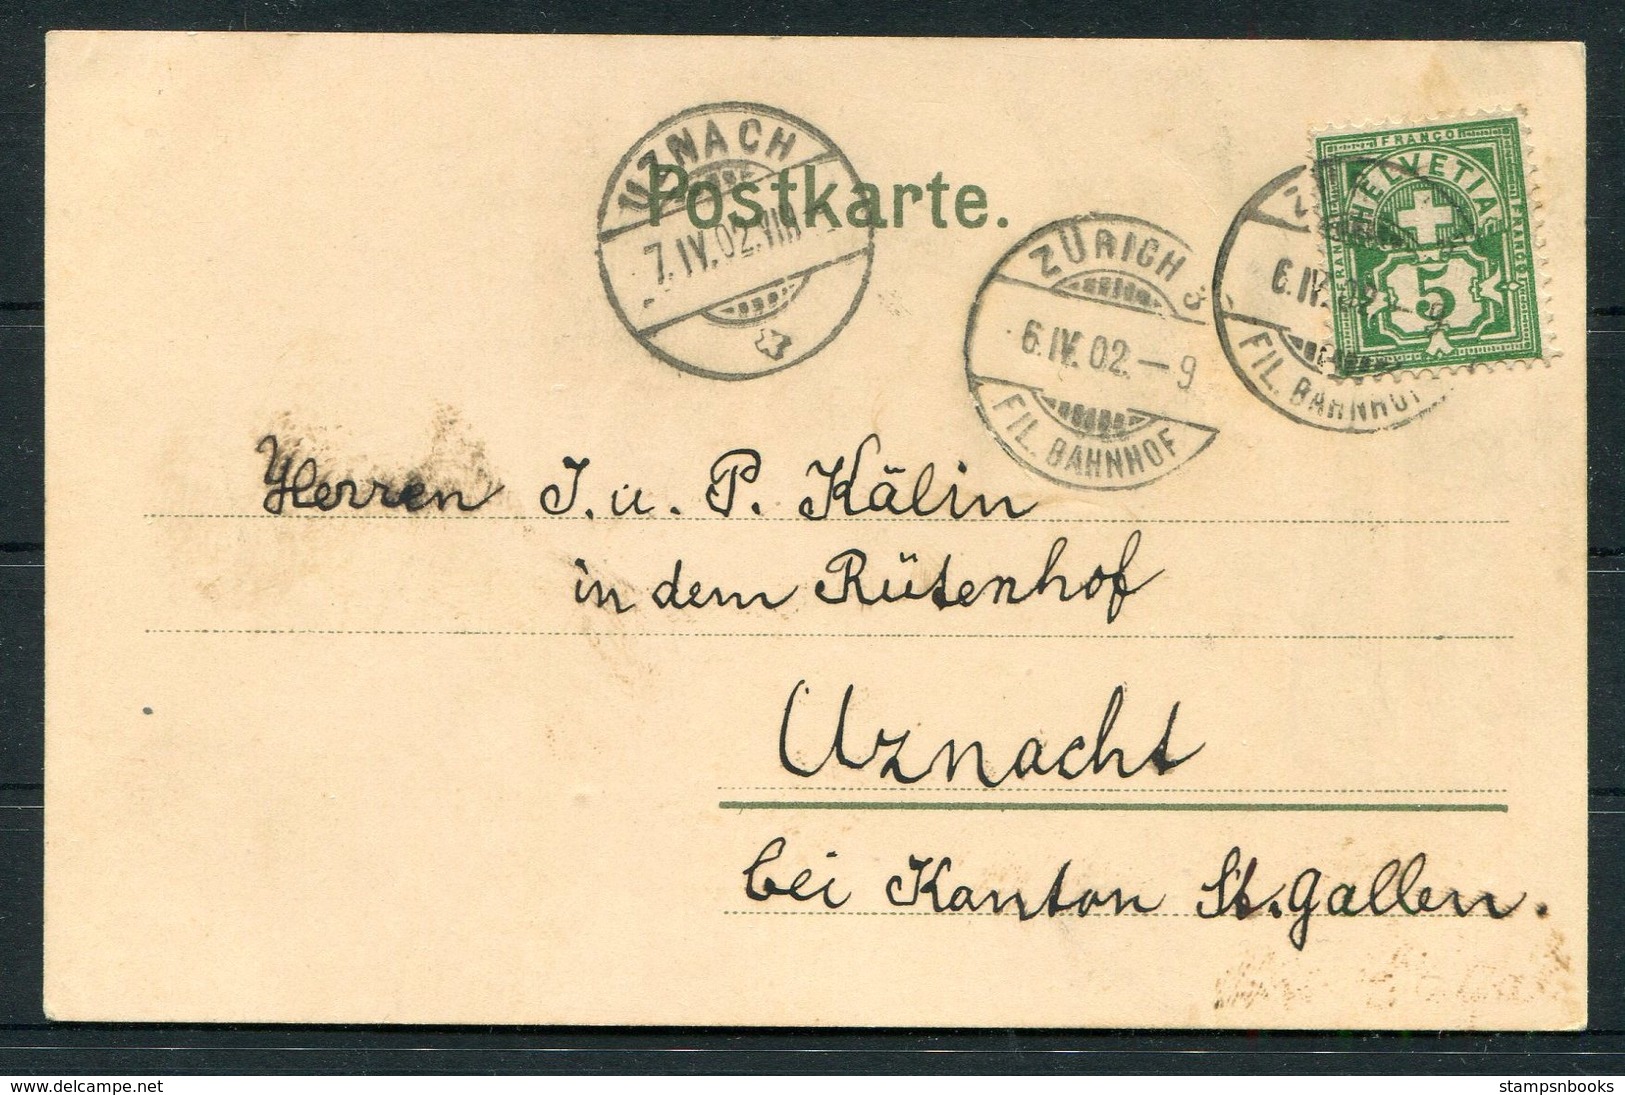 Postkarte.
UZNACH
7.IV.02.VIII
ZÜRICH
6.IV.02.-9
FIL. BAHNHOF
6.IV.02.-9
FIL. BAHNHOF
FRANCO
HELVETIA
FRANCO
5
Herren J. u. P. Kälin
in dem Rütenhof
Uznacht
bei Kanton St. Gallen.
delcampe.net
stampsnbooks